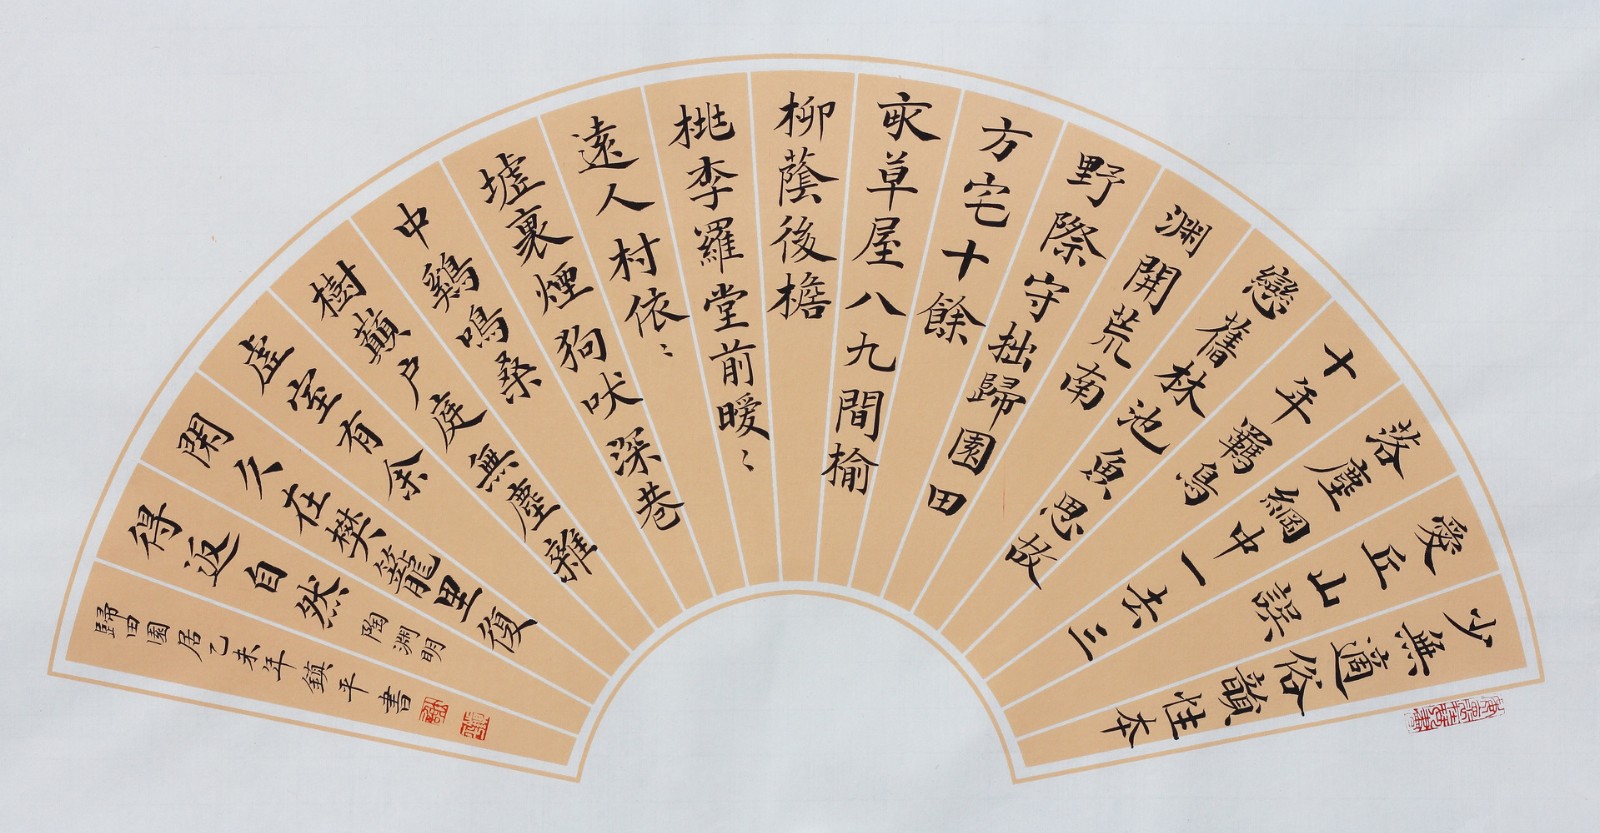 少無適俗韻性本
愛丘山誤
落塵網中一去三
十年羈鳥
戀舊林池魚思故
淵開荒南
野際守拙歸園田
方宅十餘
畝草屋八九間榆
柳蔭後檐
桃李羅堂前曖〻
遠人村依〻
墟裏煙狗吠深巷
中鷄鳴桑
樹巔户庭無塵雜
虛室有余
閑久在樊籠里復
得返自然 陶淵明
歸田園居乙未年鎮平書